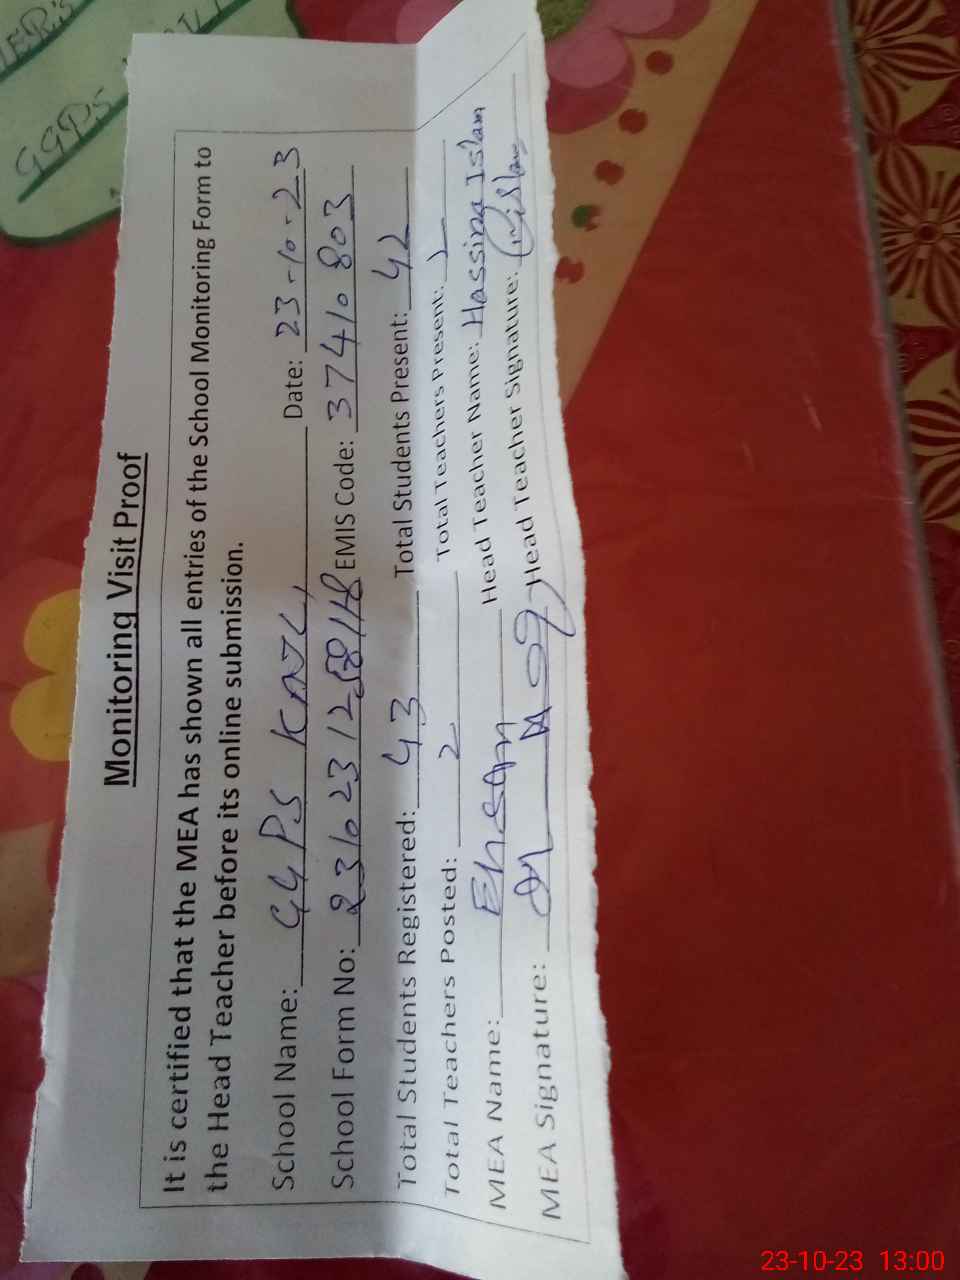 Monitoring Visit Proof
It is certified that the MEA has shown all entries of the School Monitoring Form to
the Head Teacher before its online submission.
School Name: GGPS Date: 23-10-23
School Form No: EMIS Code: 37410803
Total Students Registered: 43 Total Students Present: 42
Total Teachers Posted: 2 Total Teachers Present: 2
MEA Name: Ehsan Head Teacher Name: Hassina Islam
MEA Signature: Head Teacher Signature:
GGPS
23-10-23 13:00